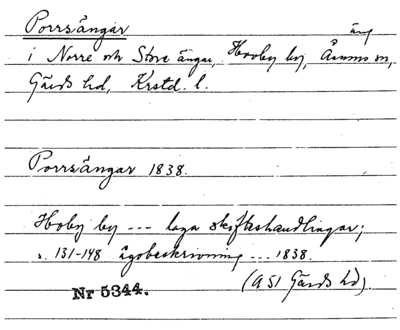 Porrsängar
äng
i Norre och Store ängar, Hovby by, Åsums sn,
Gärds hd, Krstd. l.
Porrsängar 1838.
Hovby by --- laga skifteshandlingar;
s. 131-148 ägobeskrivning --- 1838.
Nr 5344. (A 51 Gärds hd).